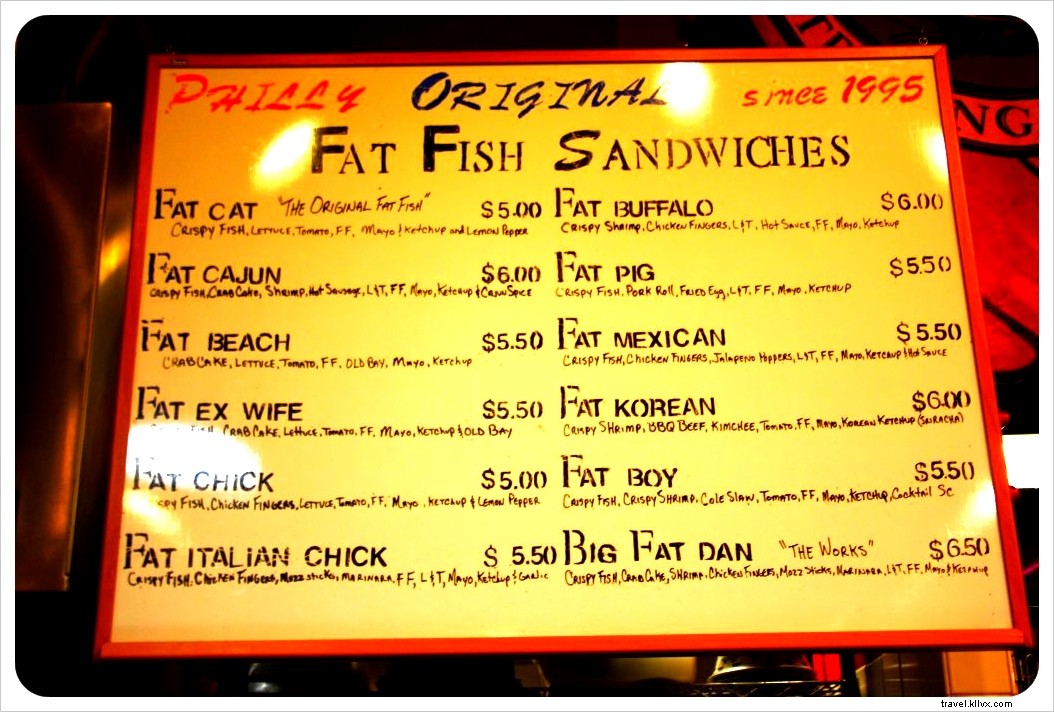 PHILLY ORIGINAL SINCE 1995
FAT FISH SANDWICHES
FAT CAT "THE ORIGINAL FAT FISH" $5.00
CRISPY FISH, LETTUCE, TOMATO, FF, MAYO & KETCHUP AND LEMON PEPPER
FAT CAJUN $6.00
CRISPY FISH, CRAB CAKE, SHRIMP, HOT SAUSAGE, L&T, FF, MAYO, KETCHUP & CAJUN SPICE
FAT BEACH $5.50
CRAB CAKE, LETTUCE, TOMATO, FF, OLD BAY, MAYO, KETCHUP
FAT EX WIFE $5.50
FISH, CRAB CAKE, LETTUCE, TOMATO, FF, MAYO, KETCHUP & OLD BAY
FAT CHICK $5.00
SPY FISH, CHICKEN FINGERS, LETTUCE, TOMATO, FF, MAYO, KETCHUP & LEMON PEPPER
FAT ITALIAN CHICK $5.50
CRISPY FISH, CHICKEN FINGERS, MOZZ STICKS, MARINARA, FF, L&T, MAYO, KETCHUP & GARLIC
FAT BUFFALO $6.00
CRISPY SHRIMP, CHICKEN FINGERS, L&T, HOT SAUCE, FF, MAYO, KETCHUP
FAT PIG $5.50
CRISPY FISH, PORK ROLL, FRIED EGG, L&T, FF, MAYO, KETCHUP
FAT MEXICAN $5.50
CRISPY FISH, CHICKEN FINGERS, JALAPENO POPPERS, L&T, FF, MAYO, KETCHUP & HOT SAUCE
FAT KOREAN $6.00
CRISPY SHRIMP, BBQ BEEF, KIMCHEE, TOMATO, FF, MAYO, KOREAN KETCHUP (SRIRACHA)
FAT BOY $5.50
CRISPY FISH, CRISPY SHRIMP, COLE SLAW, TOMATO, FF, MAYO, KETCHUP, COCKTAIL SC
BIG FAT DAN "THE WORKS" $6.50
CRISPY FISH, CRAB CAKE, SHRIMP, CHICKEN FINGERS, MOZZ STICKS, MARINARA, L&T, FF, MAYO & KETCHUP
NG
travel.kllvx.com